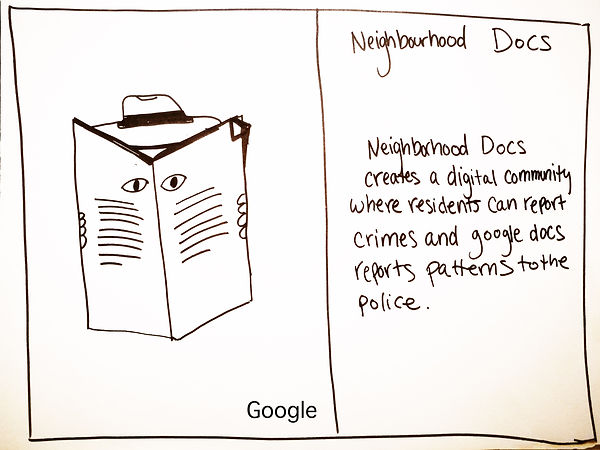 Neighbourhood Docs
Neighborhood Docs
creates a digital community
where residents can report
crimes and google docs
reports patterns to the
police.
Google